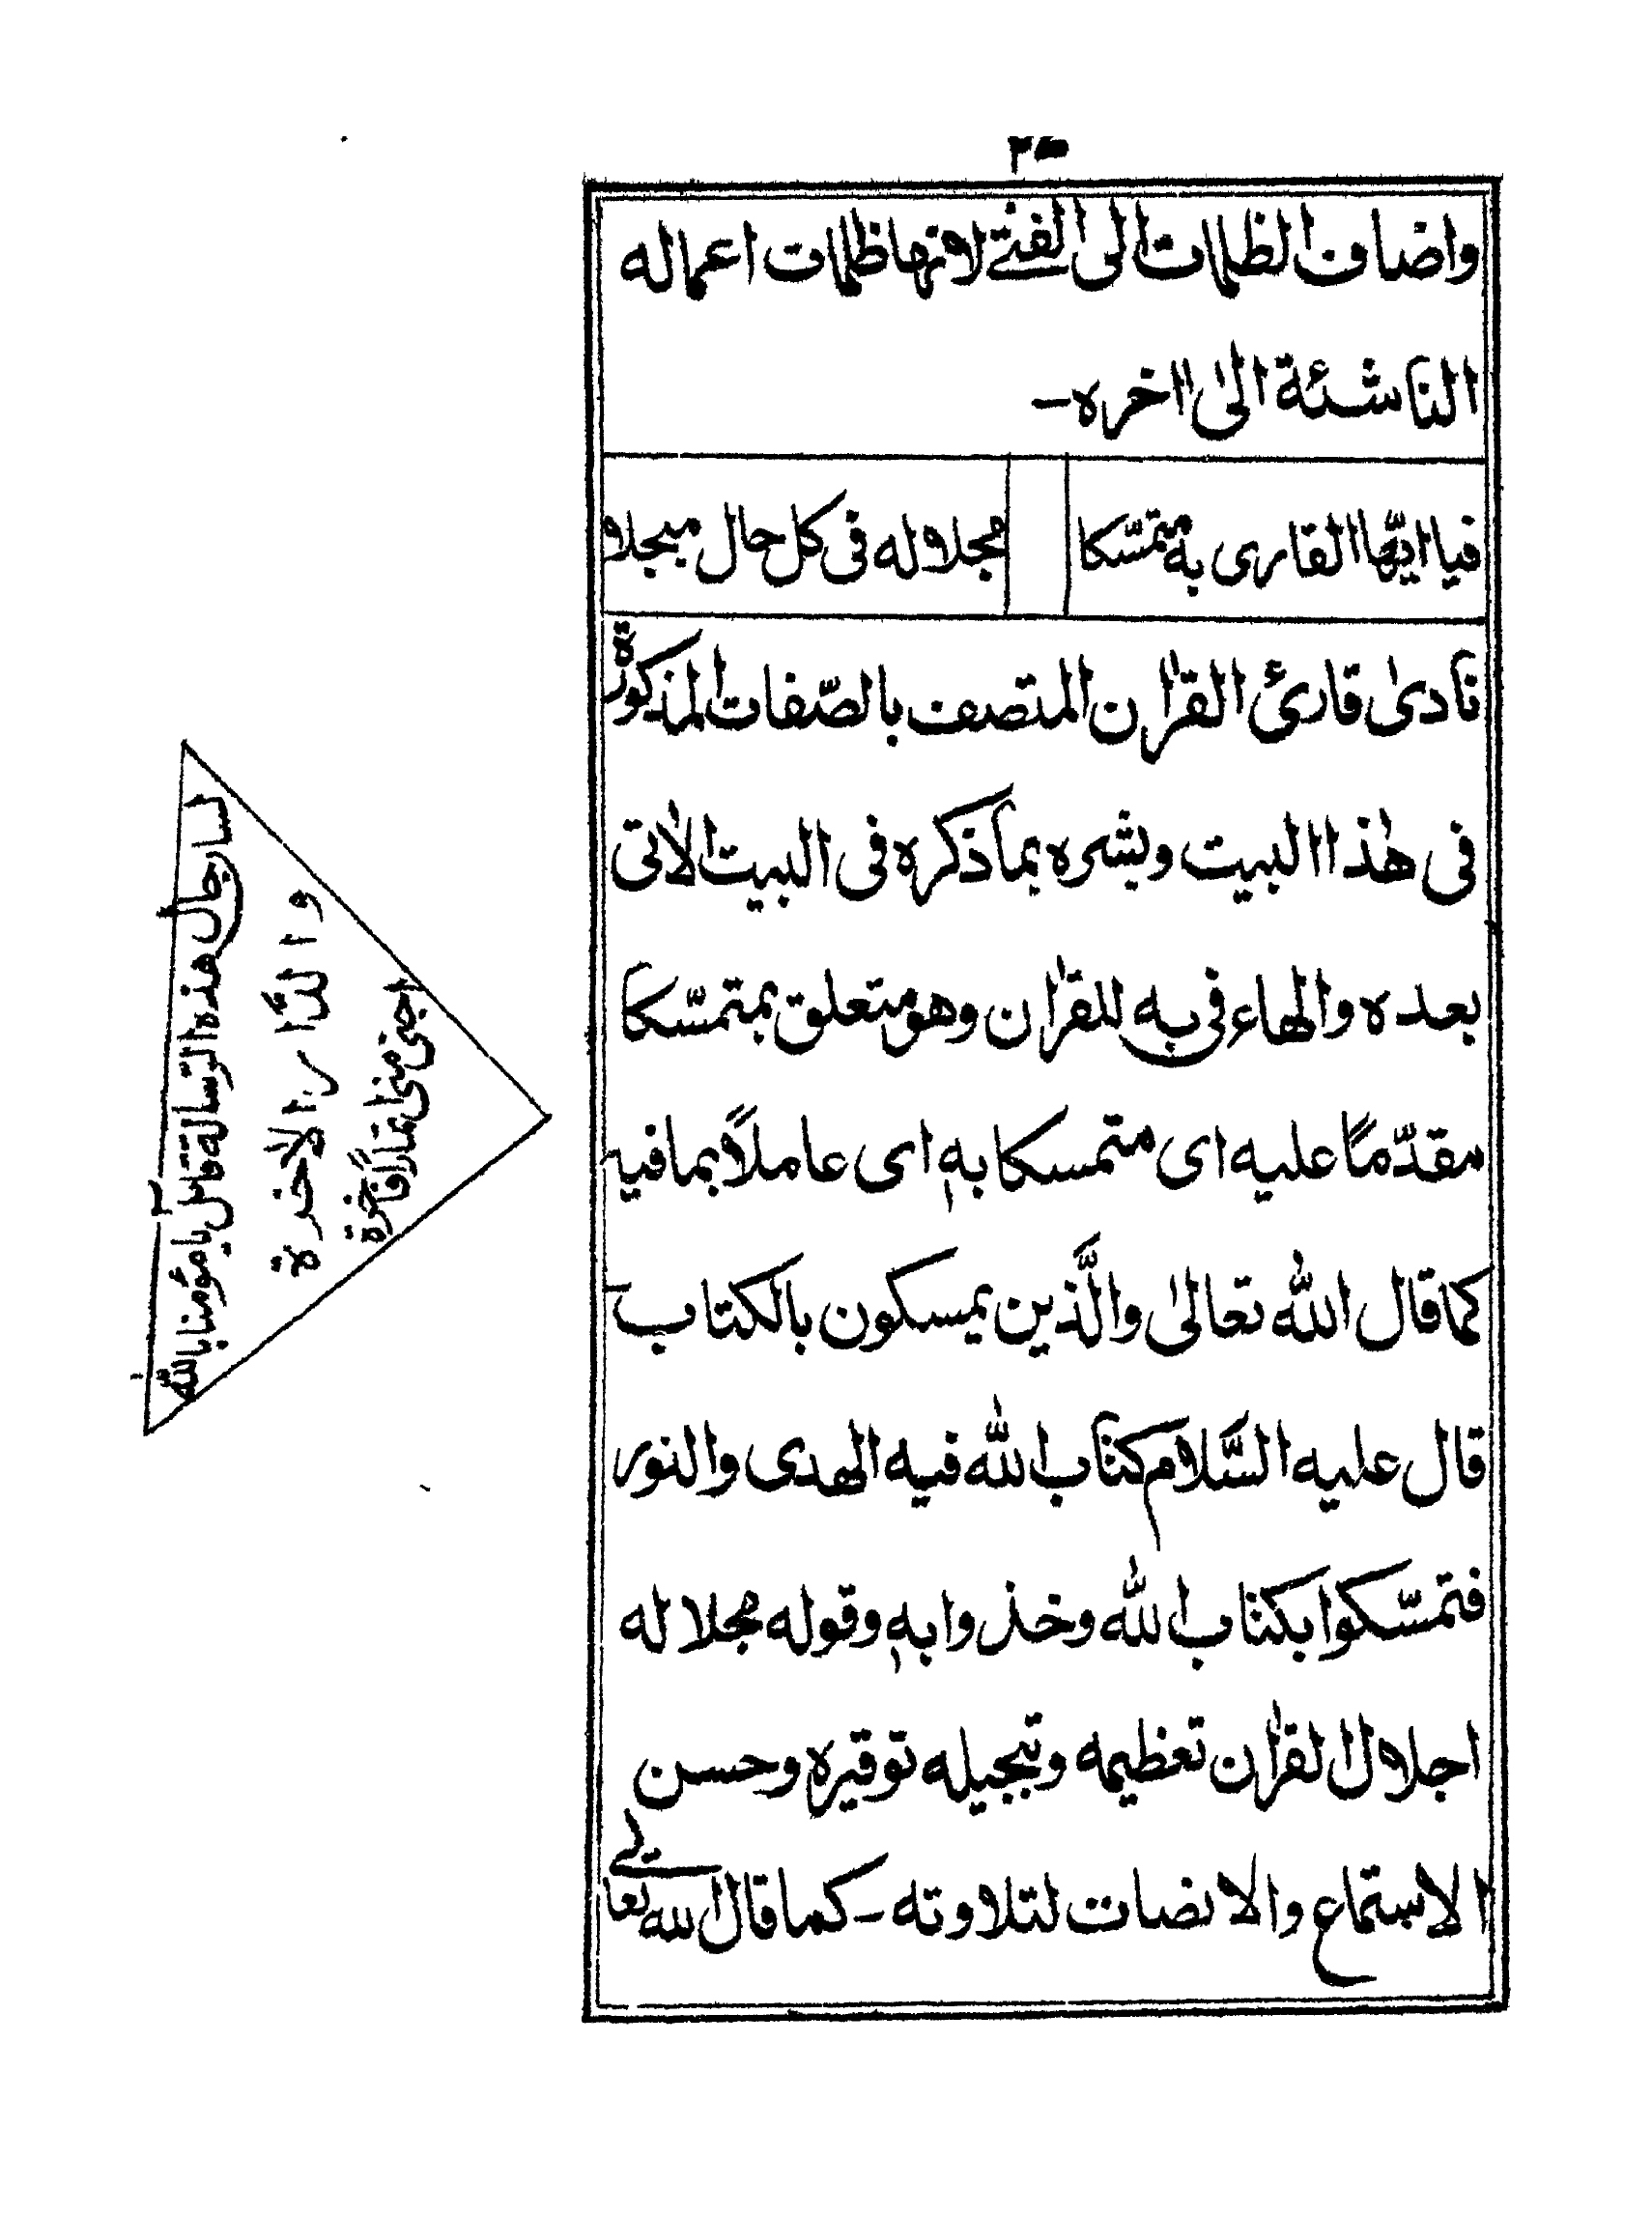 واضاف الظلمات الى الفتے لانها ظلمات اعماله
الناشئة الىٰ اٰخره ـ
فيا ايّها القارى به متمسّكا مجلا له فى كل حال مبجلا
نادىٰ قارئ القرٰان المتصف بالصّفات المذكورة
فى هٰذا البيت وبشره بما ذكره فى البيت الاٰتى
بعده والهاء فى به للقرٰان وهو متعلق بمتمسّكا
مقدّمًا عليه اى متمسكا بهٖ اى عاملًا بما فيه
كما قال اللّٰه تعالىٰ والَّذين يمسكون بالكتاب
قال عليه السَّلام كتاب اللّٰه فيه الهدى والنور
فتمسّكوا بكتاب اللّٰه وخذوا بهٖ وقوله مجلا له
اجلال القرٰان تعظيمه وتبجيله توقيره وحسن
الاستماع والانصات لتلاوته ـ كما قال الله تعالى
لسان حال هذه الرّسالة قائل يا مؤمنا باللّٰه
والدَّار الاٰخرة
اجنى منى ثمارًا فاخرة